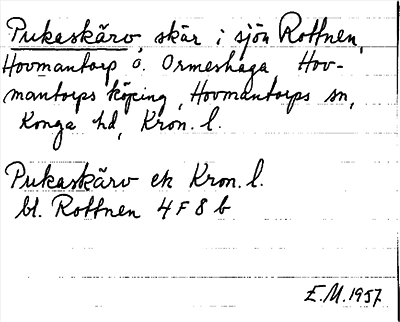 Pukaskärv, skär i sjön Rottnen,
Hovmantorp o. Ormeshaga Hov-
mantorps köping, Hovmantorps sn,
Konga hd, Kron. l.
Pukaskärv ek Kron. l.
bl. Rottnen 4 F 8 b
E.M. 1957